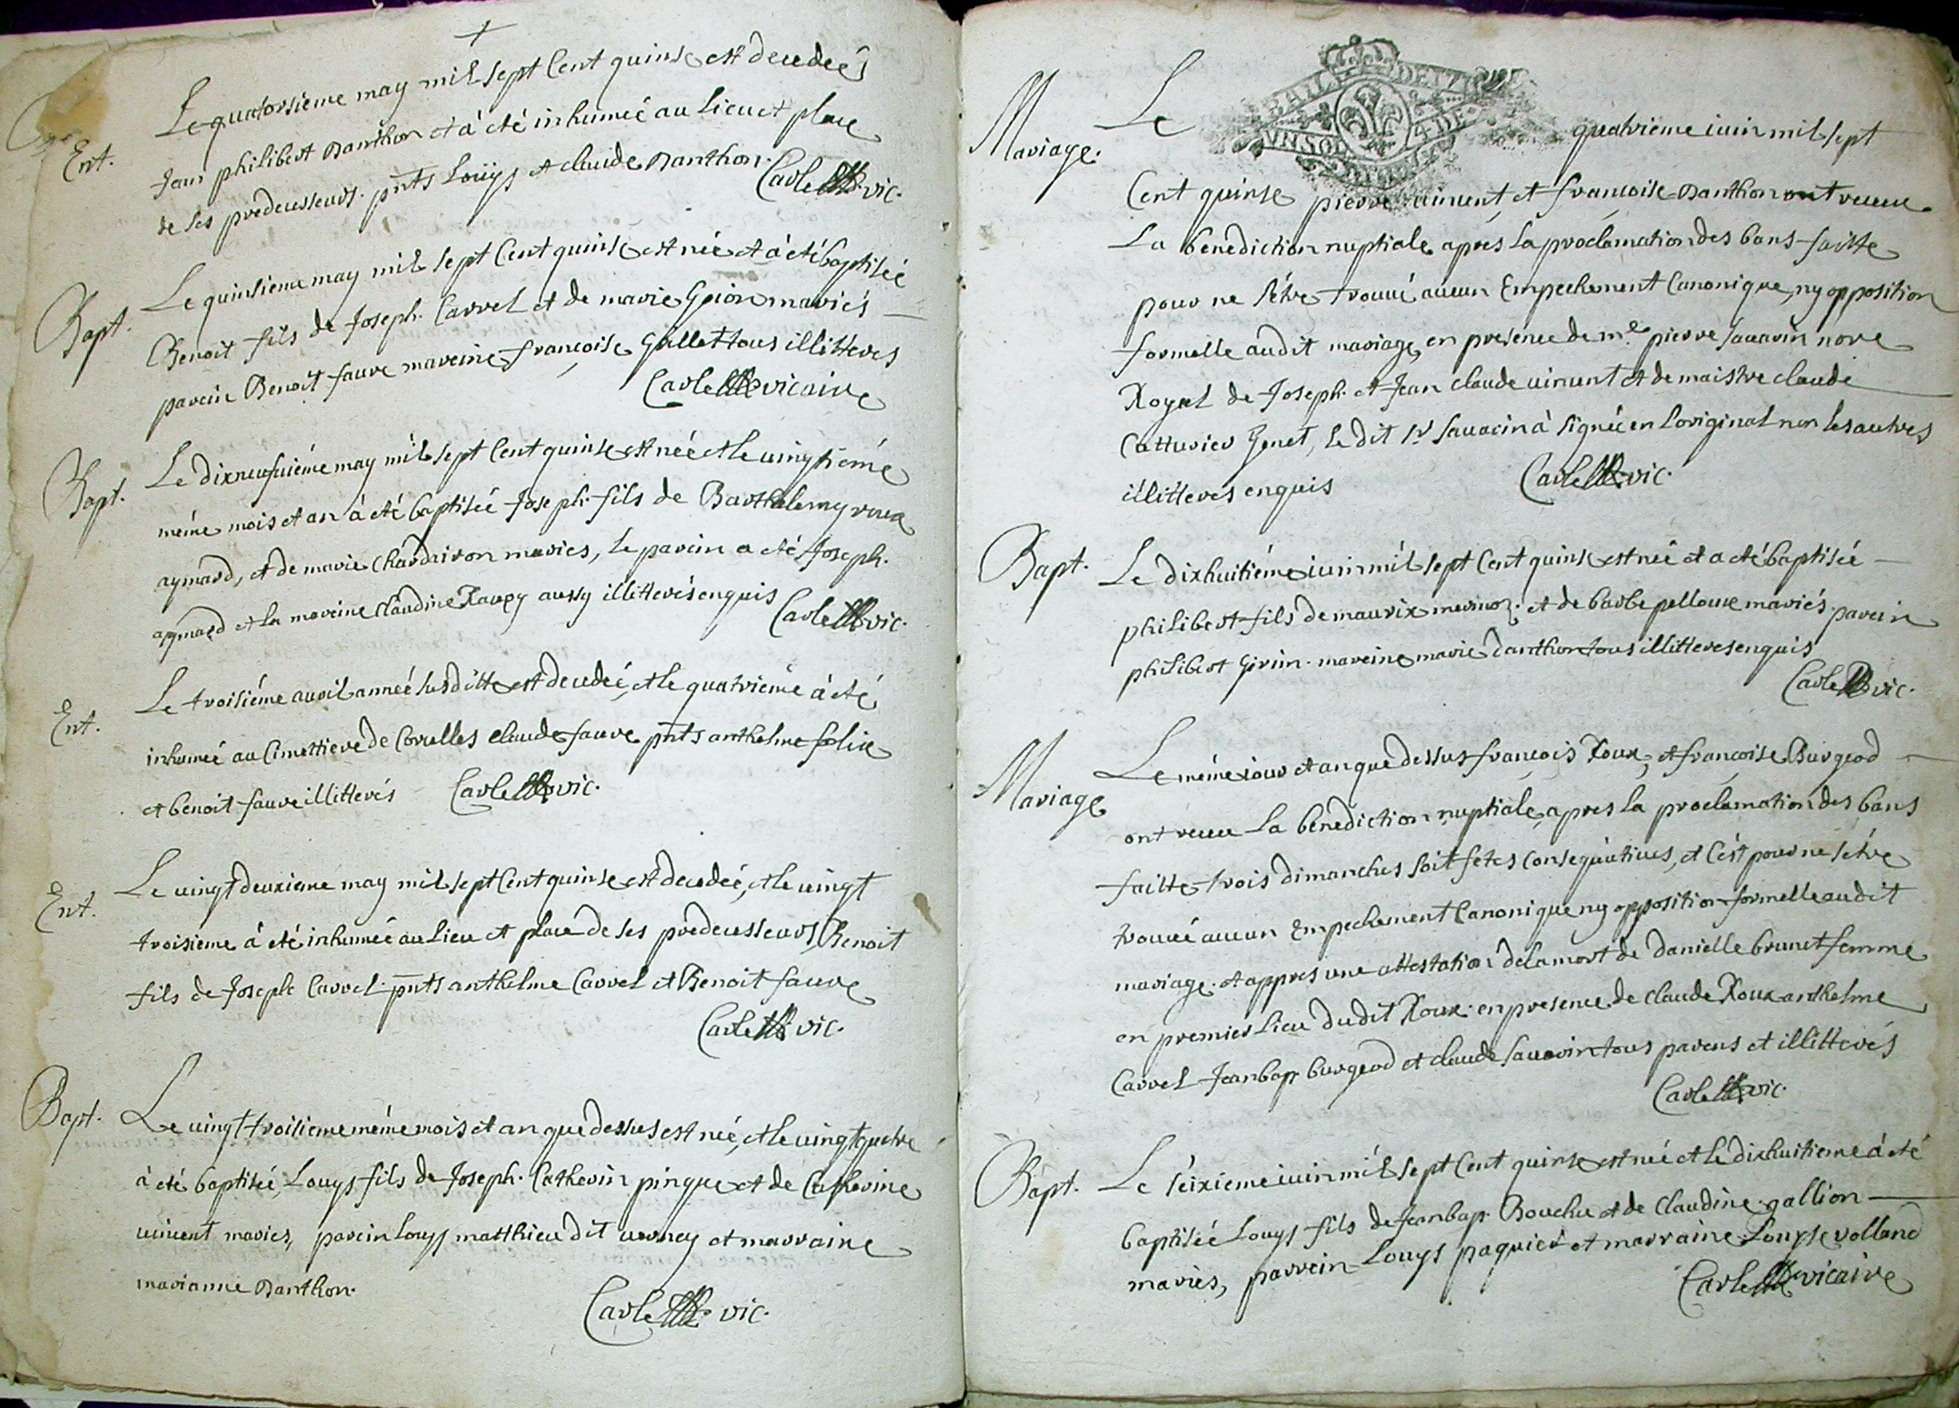 Ent.
Le quatorsieme may mil sept Cent quinse est decedeé
Jean philibert Danthon et à eté inhumeé au lieu et place
de ses predecesseurs. pnts Loüys et claude Danthon.
Carle vic.
Bapt.
Le quinsieme may mil sept Cent quinse est née et à eté baptiseé
Benoit fils de Joseph. Carrel et de marie Guion mariés
parein Benoit faure mareine françoise Gillet tous illitteres
Carle vicaire
Bapt.
Le dixneufuiéme may mil sept Cent quinse est née et le uingtiéme
méme mois et an à eté baptiseé Joseph. fils de Barthelemy roux
aymard, et de marie Chardriron mariés, le parein a eté Joseph.
aymard et la mareine Claudine aussy illitterés enquis
Carle vic.
Ent.
Le troisiéme auril anneé susditte est decedeé, et le quatrieme à eté
inhumeé au Cimettiere de Corcelles claude faure pnts anthelme felix
et benoit faure illitterés
Carle vic.
Ent.
Le uingt deuxieme may mil sept Cent quinse est decedeé, et le uingt
troisieme à eté inhumeé au lieu et place de ses predecesseurs Benoit
fils de Joseph Carrel. pnts anthelme Carrel et Benoit faure
Carle vic.
Bapt.
Le uingt troisieme méme mois et an que dessus est née, et le uingt quatre
à eté baptiseé Louys fils de Joseph. Catherin pingue et de Catherine
uincent mariés, parein Louys matthieu dit uernay et marraine
marianne Danthon.
Carle vic.
Mariage.
BAIL DE
VN SOL 4 DE
Le quatrieme iuin mil sept
Cent quinse pierre uincent, et francoise Danthon ont receu
La benediction nuptiale aprés la proclamation des bans faitte
pour ne s'étre trouué aucun Empechement Canonique, ny opposition
formelle audit mariage, en presence de me. pierre sauarin nore
Royal de Joseph. et Jean claude uincent et de maistre claude
Catturier Genet, le dit sr sauarin à signé en L'original non les autres
illitteres enquis
Carle vic.
Bapt.
Le dixhuitiéme iuin mil sept Cent quinse est née et a eté baptiseé
philibert fils de maurix mermoz. et de barbe pellouse mariés. parein
philibert Girin. mareine marie danthon tous illitteres enquis
Carle vic.
Mariage
Le méme iour et an que dessus françois Roux, et francoise Burgeod
ont receu la benediction nuptiale, apres la proclamation des bans
faitte trois dimanches soit fétes consequutiues, et c'ést pour ne s'étre
trouué aucun Empechement Canonique ny opposition formelle audit
mariage. et appres une attestation de la mort de danielle brunet femme
en premier lieu dudit Roux. en presence de claude Roux anthelme
Carrel Jean bap burgeod et claude sauarin tous parens et illitterés
Carle vic.
Bapt.
Le séizieme iuin mil sept Cent quinse est née et le dixhuitieme à eté
baptiseé Louys fils de Jean bap. Bouchu et de Claudine gallion
mariés, parrein Louys paquier et marraine Louyse volland
Carle vicaire